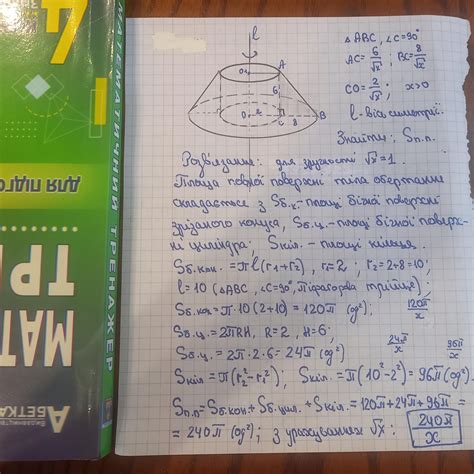 МАТЕМАТИЧНИЙ ТРЕНАЖЕР
ДЛЯ ПІДГО
МАТ
ТР
АБЕТКА
l
O₁
A
6
O
2
C
8
B
△ ABC, ∠C=90°
AC= 6/√x ; BC= 8/√x
CO= 2/√x ; x>0
l - вісь симетрії.
Знайти: Sп.п.
Розв'язання: для зручності √x=1.
Площа повної поверхні тіла обертання
складається з Sб.к.-площі бічної поверхні
зрізаного конуса, Sб.ц.-площі бічної поверх-
ні циліндра, Sкіл.- площі кільця.
Sб.кон.=πl(r₁+r₂), r₁=2; r₂=2+8=10;
l=10 (△ABC, ∠C=90°, Піфагорова трійця);
Sб.кон=π·10(2+10)=120π (од²); 120π/x
Sб.ц.=2πRH, R=2, H=6;
Sб.ц.=2π·2·6=24π (од²) 24π/x 96π/x
Sкіл=π(r₂²-r₁²); Sкіл.=π(10²-2²)=96π(од²)
Sп.п=Sб.кон+Sб.цил.+Sкіл=120π+24π+96π=
=240π (од²); з урахуванням √x: 240π/x